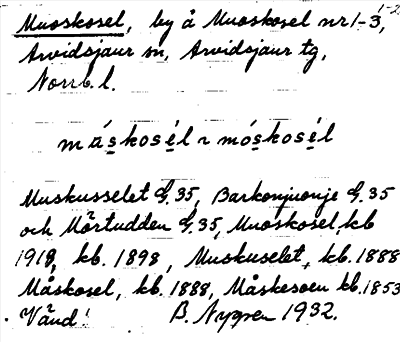 1-2
Muoskosel, by å Muoskosel nr 1-3,
Arvidsjaur sn, Arvidsjaur tg,
Norrb. l.
måskosél ~ móskosél
Muskusselet G. 35, Barkonjuonje G. 35
och Mörtudden G. 35, Muoskosel kb
1918, kb. 1898, Muskuselet, kb. 1888
Måskosel, kb. 1888, Måskesoen kb. 1853
Vänd! B. Nygren 1932.